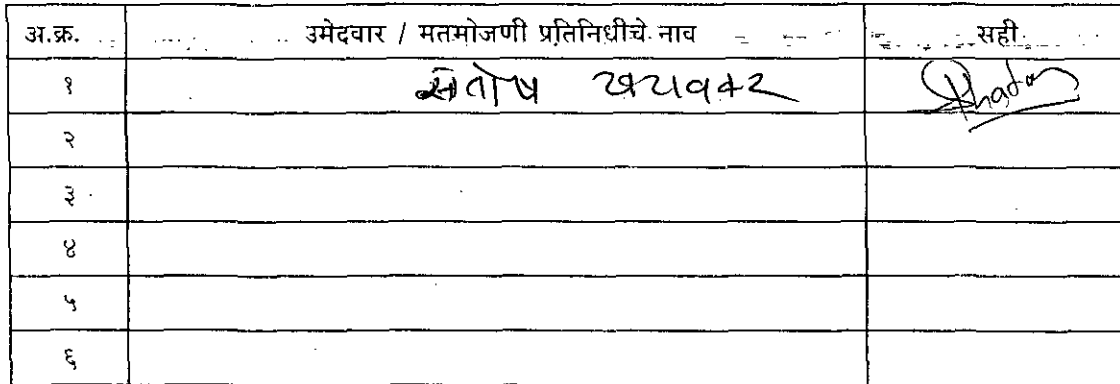 अ.क्र. उमेदवार / मतमोजणी प्रतिनिधीचे नाव सही
१ संतोष
२
३
४
५
६